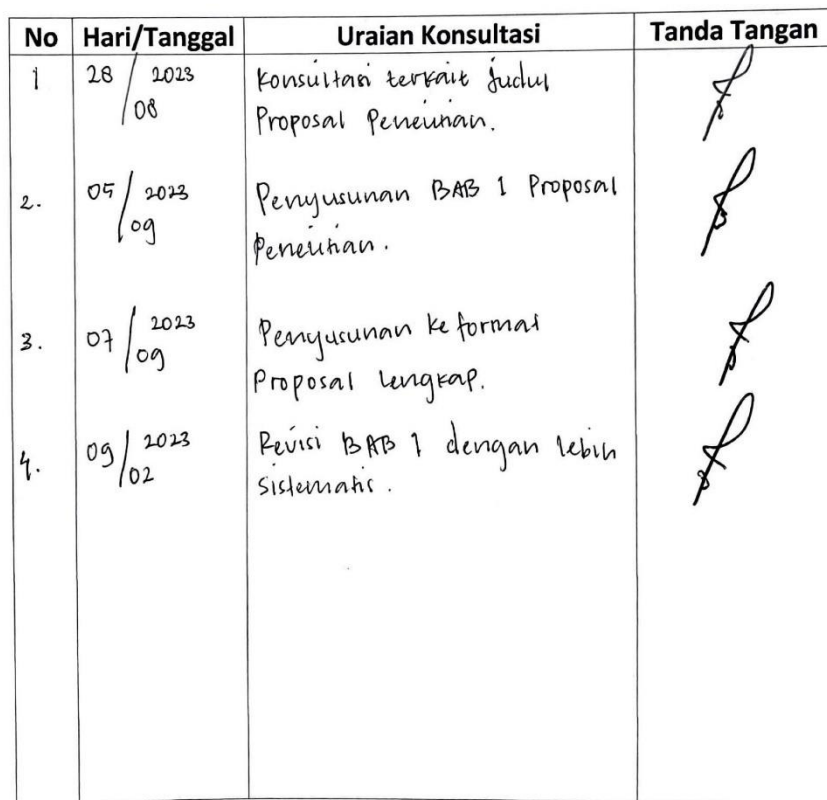 No Hari/Tanggal Uraian Konsultasi Tanda Tangan
1 28/08 2023 Konsultasi terkait Judul
Proposal Penelitian.
2. 05/09 2023 Penyusunan BAB 1 Proposal
Penelitian.
3. 07/09 2023 Penyusunan ke format
Proposal lengkap.
4. 09/02 2023 Revisi BAB 1 dengan lebih
Sistematis.